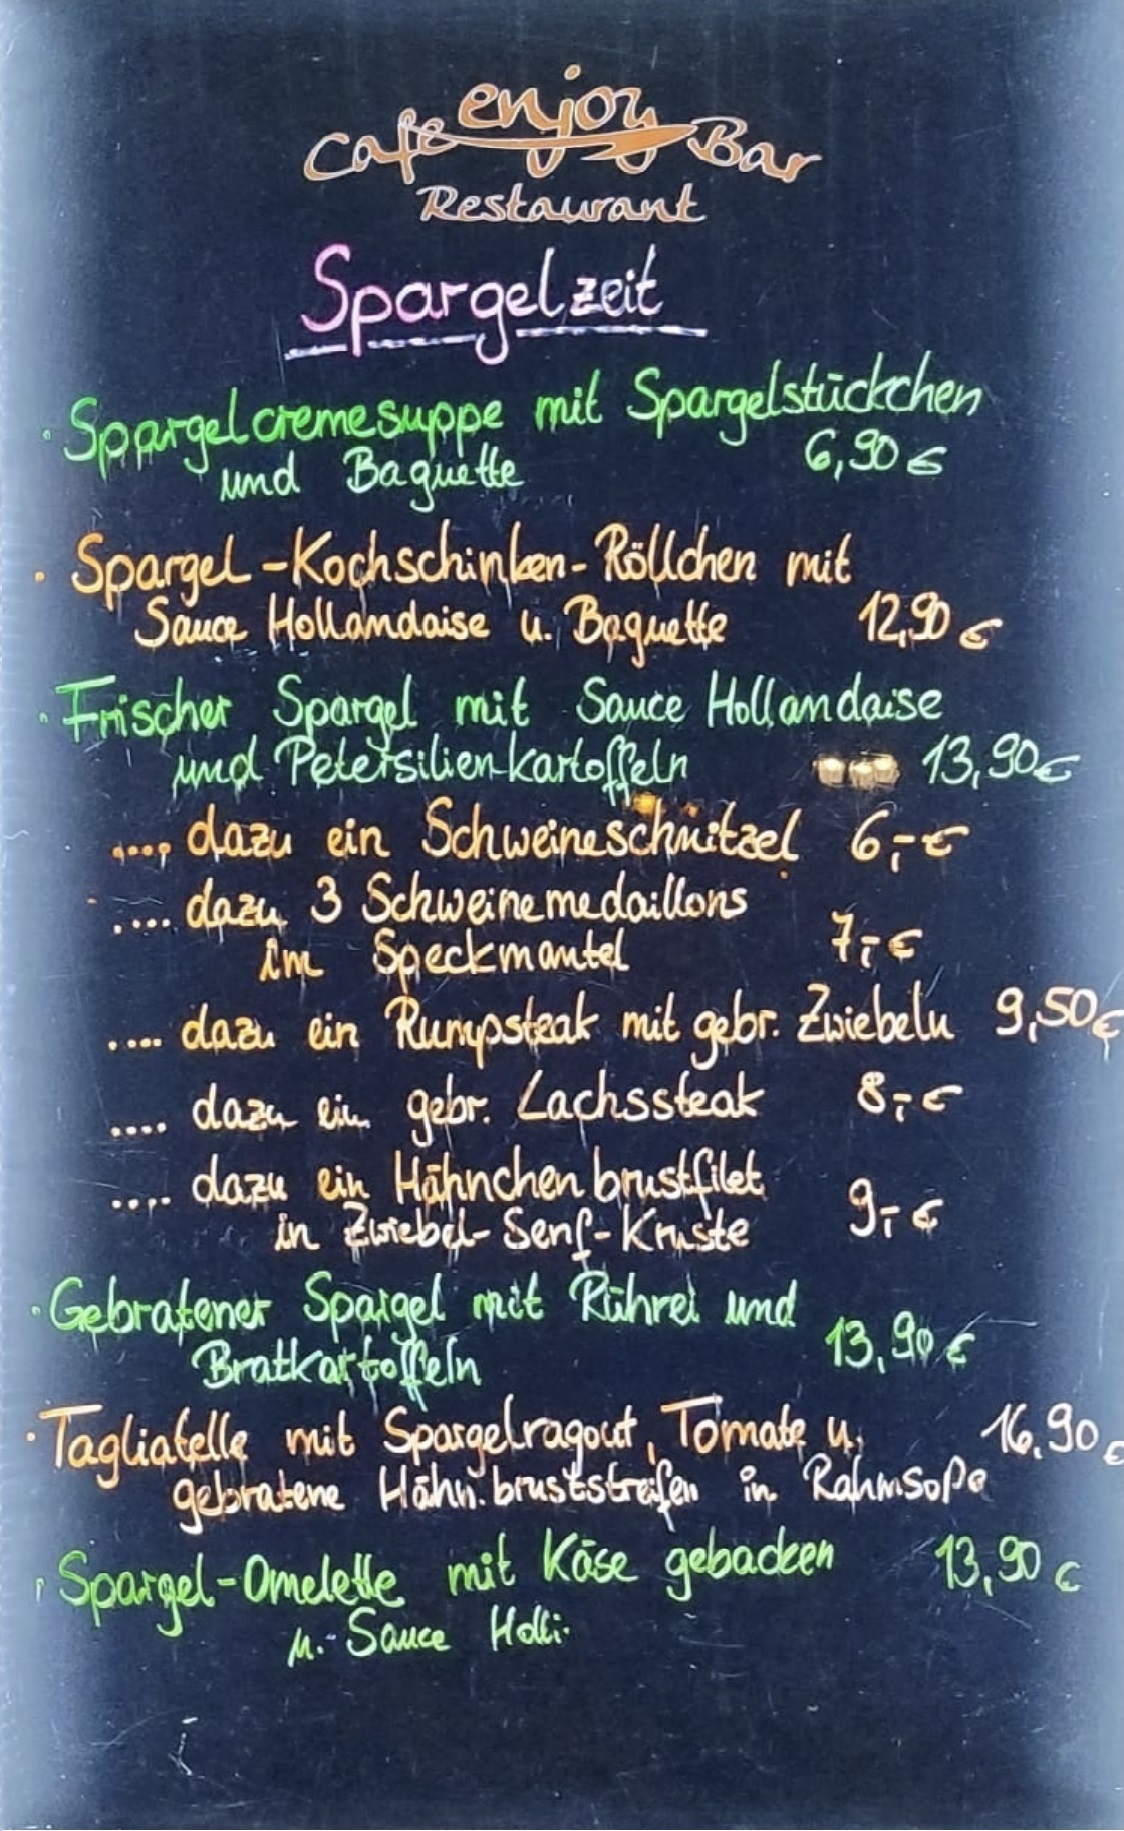 enjoy
Cafe Bar
Restaurant
Spargelzeit
· Spargelcremesuppe mit Spargelstückchen
und Baguette 6,90 €
· Spargel-Kochschinken-Röllchen mit
Sauce Hollandaise u. Baguette 12,90 €
· Frischer Spargel mit Sauce Hollandaise
und Petersilienkartoffeln 13,90 €
.... dazu ein Schweineschnitzel 6,- €
.... dazu 3 Schweinemedaillons
im Speckmantel 7,- €
.... dazu ein Rumpsteak mit gebr. Zwiebeln 9,50 €
.... dazu ein gebr. Lachssteak 8,- €
.... dazu ein Hähnchenbrustfilet
in Zwiebel-Senf-Kruste 9,- €
· Gebratener Spargel mit Rührei und
Bratkartoffeln 13,90 €
· Tagliatelle mit Spargelragout, Tomate u. 16,90 €
gebratene Hähn.bruststreifen in Rahmsoße
· Spargel-Omelette mit Käse gebacken 13,90 €
u. Sauce Holli.